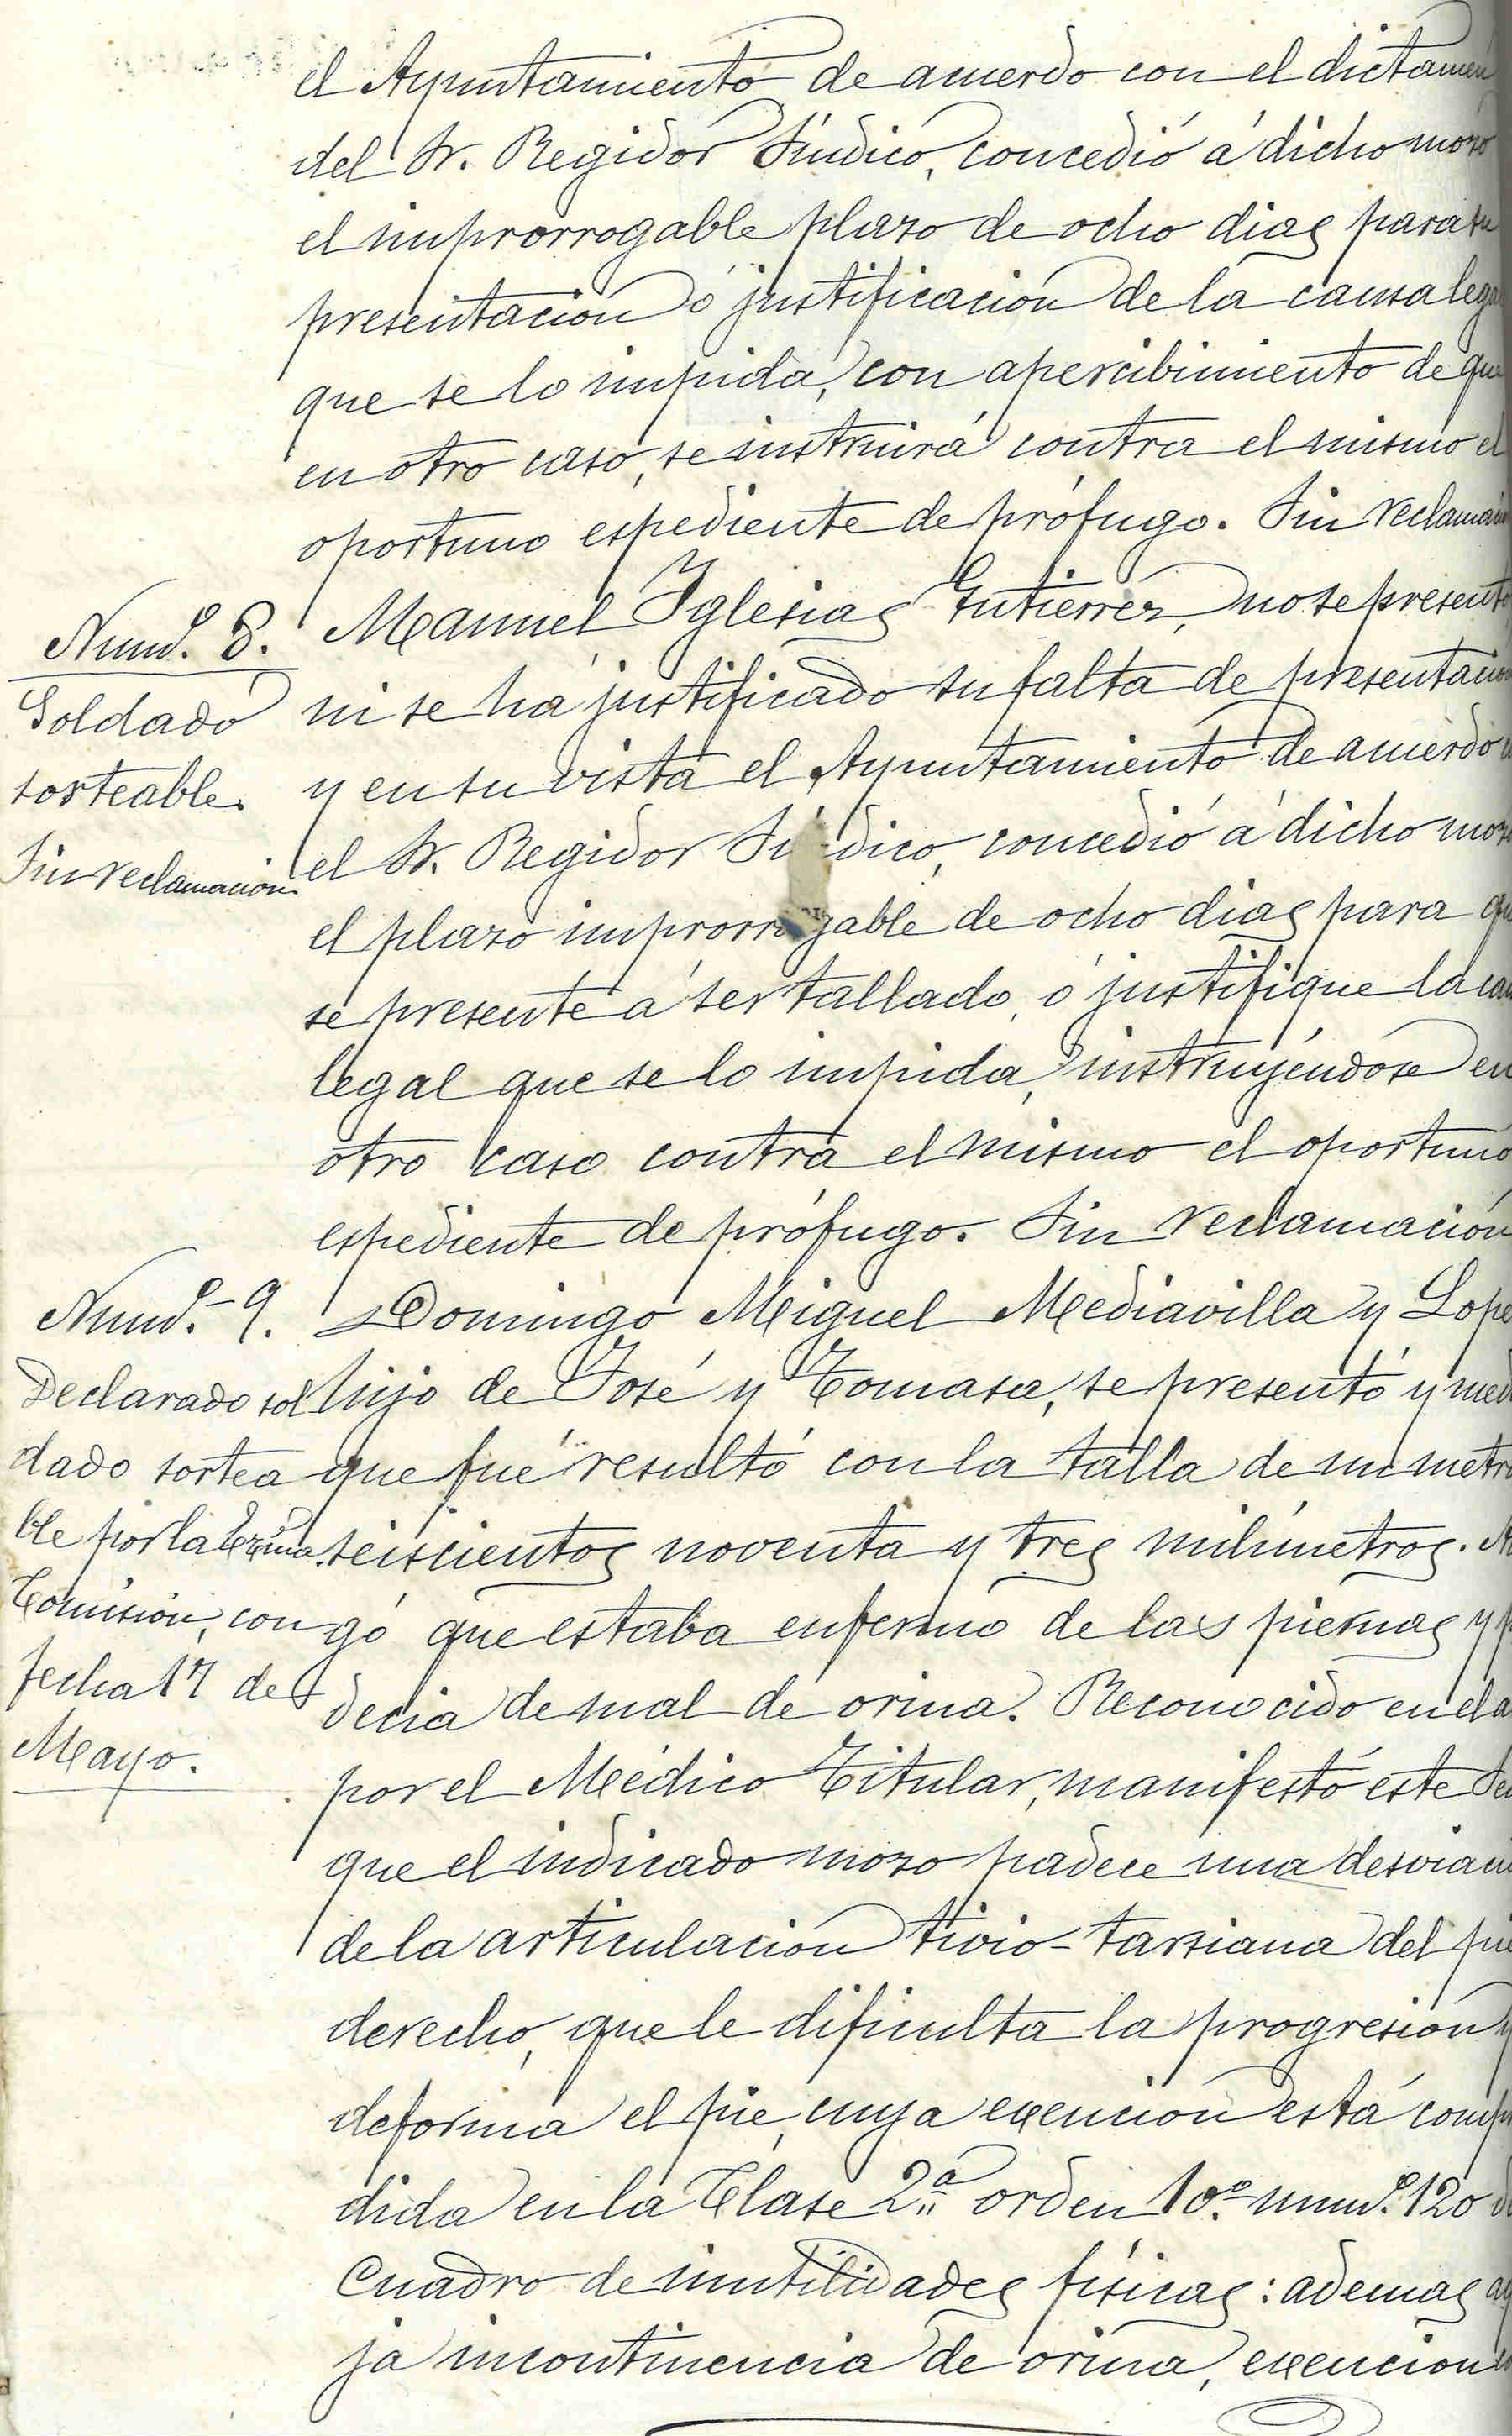 el Ayuntamiento de acuerdo con el dictamen
del Sr. Regidor Síndico, concedió á dicho mozo
el improrrogable plazo de ocho dias para su
presentación ó justificación de la causa lega
que se lo impida, con apercibimiento de que
en otro caso, se instruirá contra el mismo el
oportuno espediente de prófugo. Sin reclamación
Numº. 8.
Soldado
sorteable.
Sin reclamación
Manuel Iglesias Gutierrez, no se presentó
ni se ha justificado su falta de presentación
y en su vista el Ayuntamiento de acuerdo
el Sr. Regidor Sí dico, concedió á dicho mozo
el plazo improrrogable de ocho dias para qu
se presente á ser tallado, ó justifique la cau
legal que se lo impida, instruyéndose en
otro caso contra el mismo el oportuno
espediente de prófugo. Sin reclamación
Numº. 9.
Declarado sol
dado sortea
ble por la Exma.
Comisión, con
fecha 17 de
Mayo.
Domingo Miguel Mediavilla y Lope
hijo de José y Tomasa, se presentó y med
que fué resultó con la talla de un metro
seiscientos noventa y tres milímetros. A
gó que estaba enfermo de las piernas y p
decia de mal de orina. Reconocido en el a
por el Médico Titular, manifestó este Se
que el indicado mozo padece una desviaci
de la articulación tivio-tarsiana del pie
derecho, que le dificulta la progresión y
deforma el pie, cuya exención está comp
dida en la Clase 2ª orden 10.º numº. 120 d
Cuadro de inutilidades físicas: ademas aq
ja incontinencia de orina, exencion